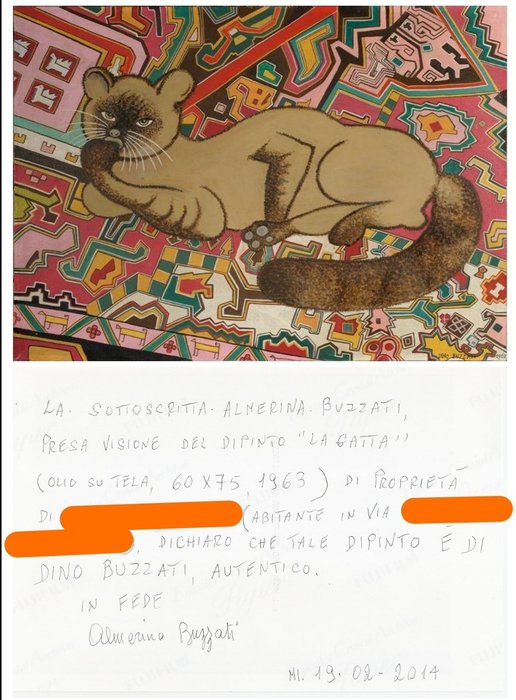 DINO BUZZATI
LA SOTTOSCRITTA ALMERINA BUZZATI,
PRESA VISIONE DEL DIPINTO "LA GATTA"
(OLIO SU TELA, 60 X 75, 1963) DI PROPRIETÀ
DI (ABITANTE IN VIA
), DICHIARO CHE TALE DIPINTO È DI
DINO BUZZATI, AUTENTICO.
IN FEDE
Almerina Buzzati
MI. 19-02-2014